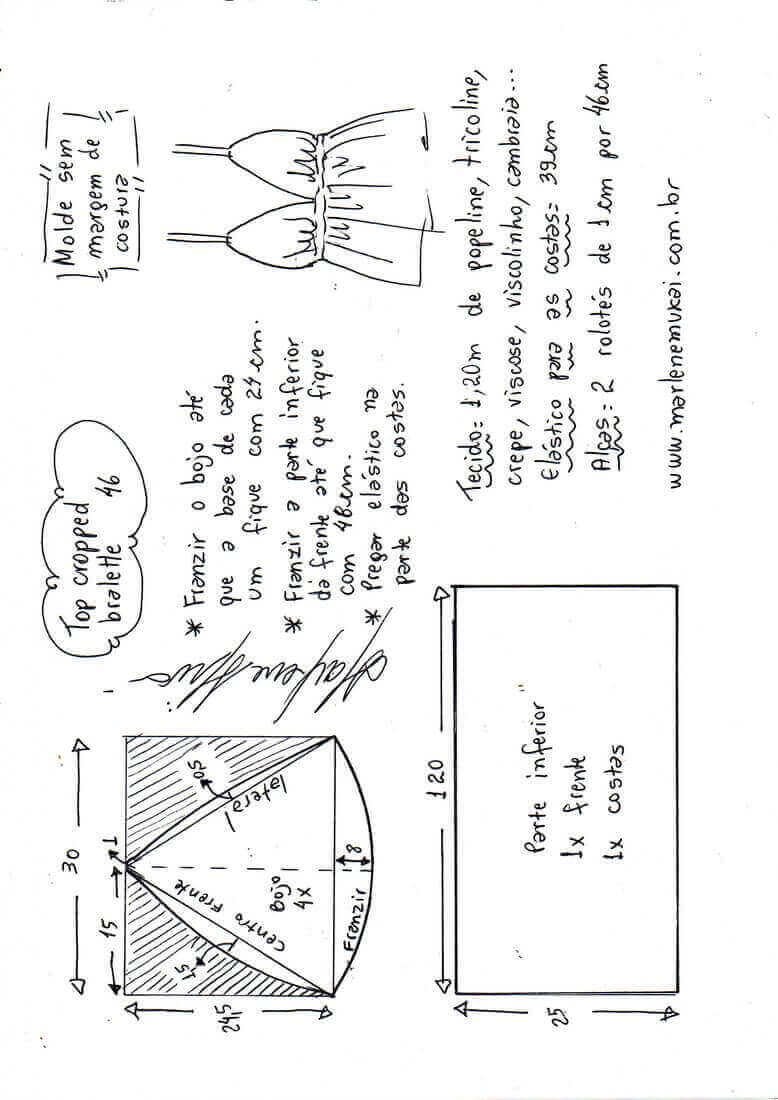 Top cropped
bralette 46
Molde sem
margem de
costura
30
15
1
24,5
1,5
0,5
centro frente
lateral
Bojo
4x
Franzir
8
* Franzir o bojo até
que a base de cada
um fique com 24 cm.
* Franzir a parte inferior
da frente até que fique
com 48cm.
* Pregar elástico na
parte das costas.
120
25
Parte inferior
1x frente
1x costas
Tecido= 1,20m de popeline, tricoline,
crepe, viscose, viscolinho, cambraia...
Elástico para as costas= 39cm
Alças= 2 rolotés de 1cm por 46cm
www.marlenemukai.com.br